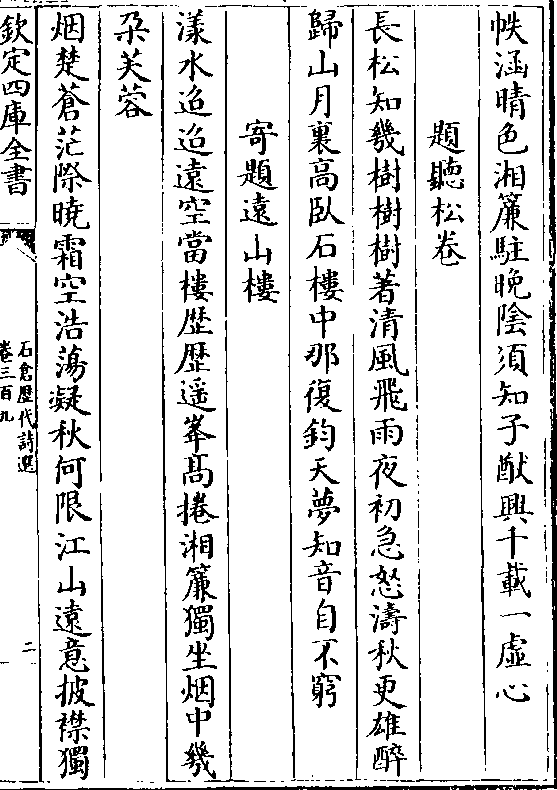 帙涵晴色湘簾駐晚陰須知子猷興千載一虛心
題聽松卷
長松知幾樹樹樹著清風飛雨夜初急怒濤秋更雄醉
歸山月裏高臥石樓中那復鈞天夢知音自不窮
寄題遠山樓
漾水迢迢遠空當樓歴歴遥峯髙捲湘簾獨坐烟中幾
朶芙蓉
烟楚蒼茫際曉霜空浩蕩凝秋何限江山遠意披襟獨
欽定四庫全書
石倉歴代詩選
卷三百九
二